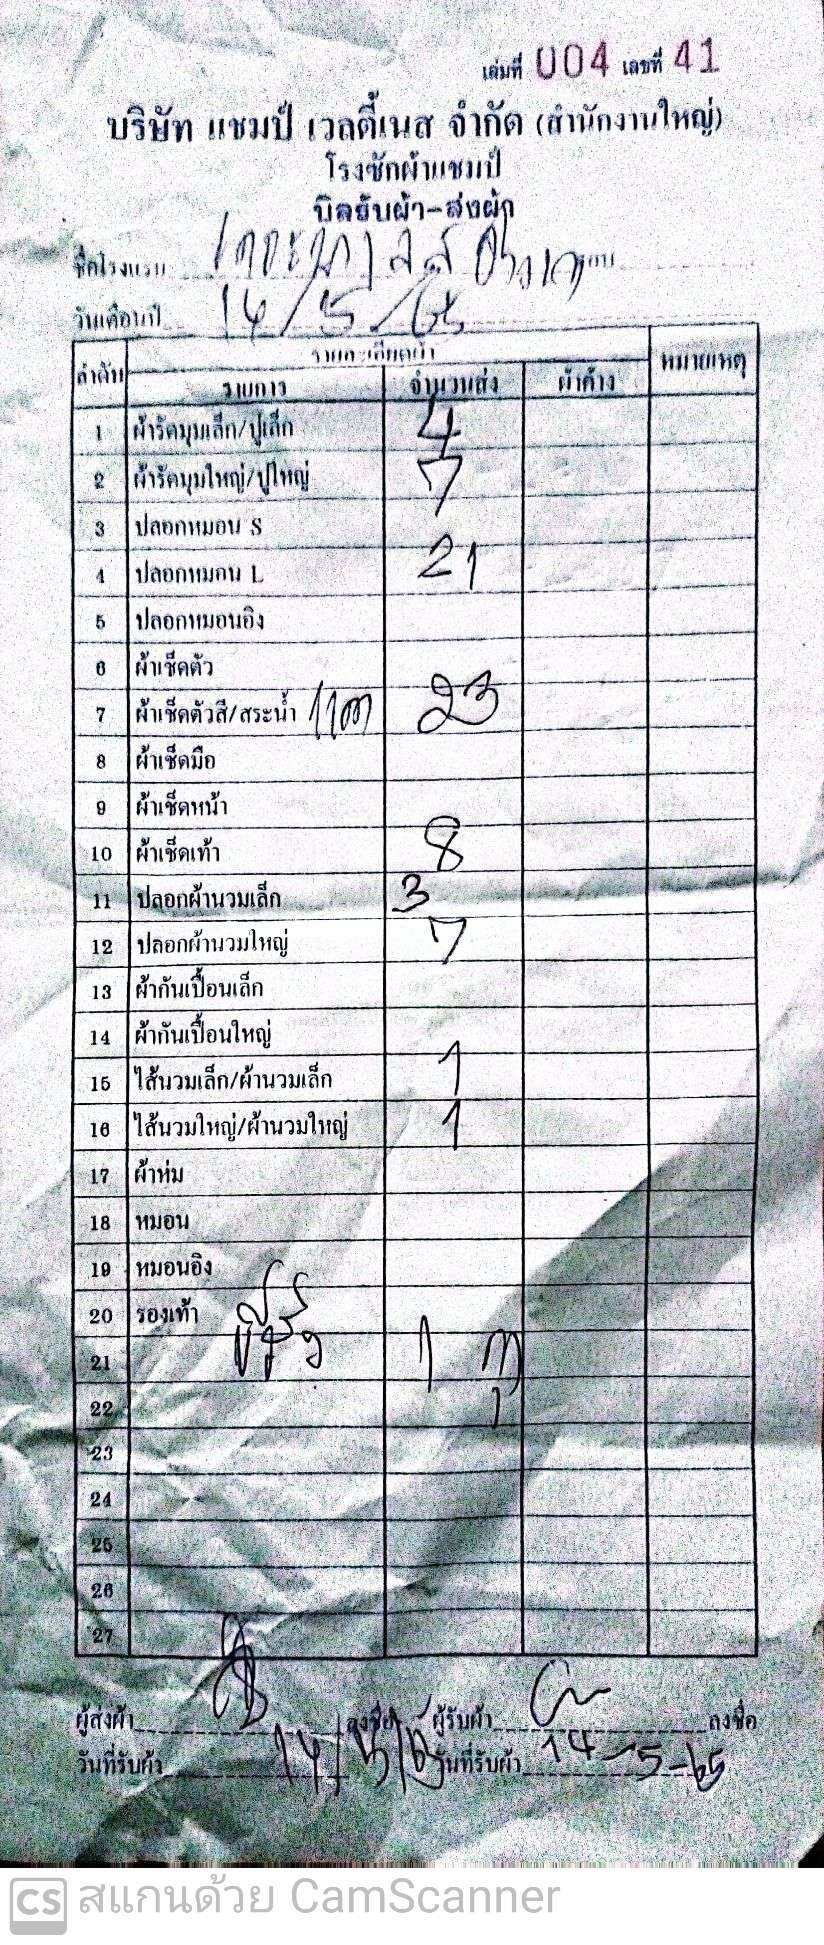 เล่มที่ 004 เลขที่ 41
บริษัท แชมป์ เวลดี้เนส จำกัด (สำนักงานใหญ่)
โรงซักผ้าแชมป์
บิลรับผ้า-ส่งผ้า
ชื่อโรงแรม
วันเดือนปี 14/5/65
ลำดับ รายละเอียดผ้า หมายเหตุ
รายการ จำนวนส่ง ผ้าค้าง
1 ผ้ารัดมุมเล็ก/ปูเล็ก 4
2 ผ้ารัดมุมใหญ่/ปูใหญ่ 7
3 ปลอกหมอน S
4 ปลอกหมอน L 21
5 ปลอกหมอนอิง
6 ผ้าเช็ดตัว
7 ผ้าเช็ดตัวสี/สระน้ำ 23
8 ผ้าเช็ดมือ
9 ผ้าเช็ดหน้า
10 ผ้าเช็ดเท้า 8
11 ปลอกผ้านวมเล็ก 3
12 ปลอกผ้านวมใหญ่ 7
13 ผ้ากันเปื้อนเล็ก
14 ผ้ากันเปื้อนใหญ่
15 ไส้นวมเล็ก/ผ้านวมเล็ก 1
16 ไส้นวมใหญ่/ผ้านวมใหญ่ 1
17 ผ้าห่ม
18 หมอน
19 หมอนอิง
20 รองเท้า
21 1
22
23
24
25
26
27
ผู้ส่งผ้า ลงชื่อ ผู้รับผ้า ลงชื่อ
วันที่รับผ้า 14/5/65 วันที่รับผ้า 14-5-65
CS สแกนด้วย CamScanner